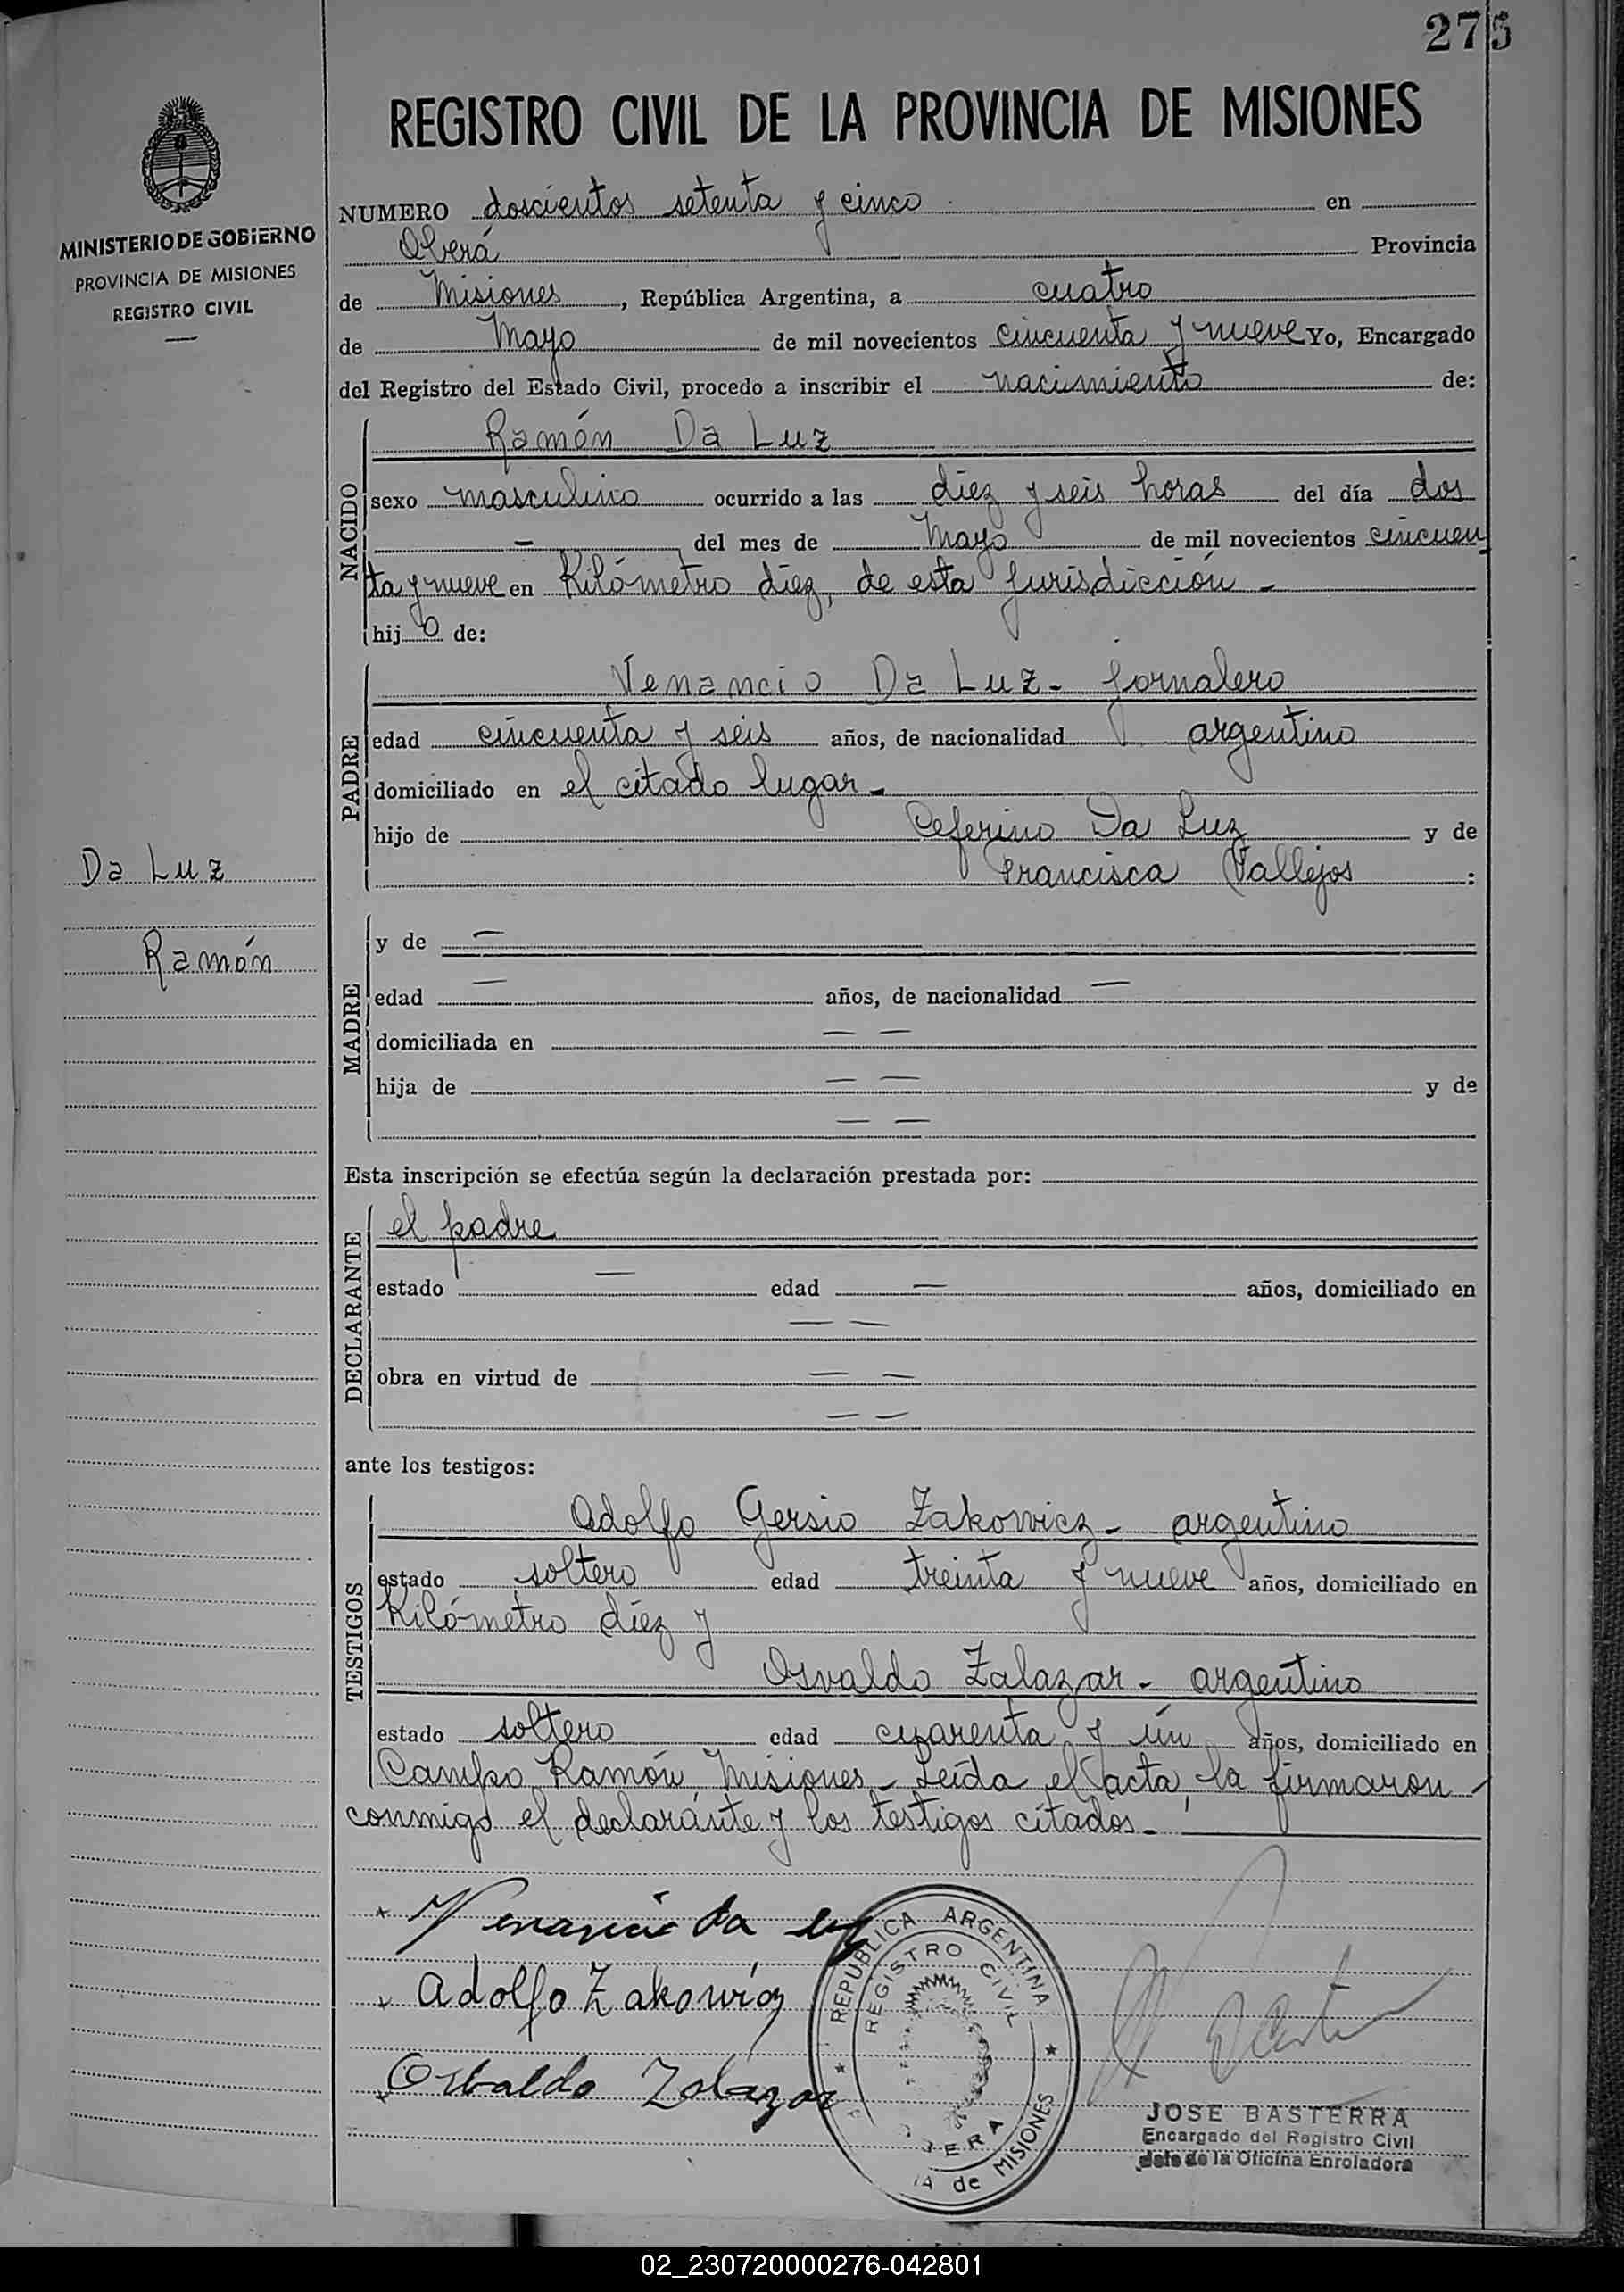 275
REGISTRO CIVIL DE LA PROVINCIA DE MISIONES
MINISTERIO DE GOBIERNO
PROVINCIA DE MISIONES
REGISTRO CIVIL
NUMERO doscientos setenta y cinco en
Oberá Provincia
de Misiones, República Argentina, a cuatro
de Mayo de mil novecientos cincuenta y nueve Yo, Encargado
del Registro del Estado Civil, procedo a inscribir el nacimiento de:
NACIDO
Ramón Da Luz
sexo masculino ocurrido a las diez y seis horas del día dos
— del mes de Mayo de mil novecientos cincuen
ta y nueve en Kilómetro diez, de esta Jurisdicción -
hijo de:
PADRE
Venancio Da Luz - Jornalero
edad cincuenta y seis años, de nacionalidad argentino
domiciliado en el citado lugar -
hijo de Ceferino Da Luz y de
Francisca Vallejos :
Da Luz
Ramón
MADRE
y de —
edad — años, de nacionalidad —
domiciliada en — —
hija de — — y de
— —
Esta inscripción se efectúa según la declaración prestada por:
DECLARANTE
el padre
estado — edad — años, domiciliado en
— —
obra en virtud de — —
— —
ante los testigos:
TESTIGOS
Adolfo Gersio Zakowicz - argentino
estado soltero edad treinta y nueve años, domiciliado en
Kilómetro diez y
Osvaldo Zalazar - argentino
estado soltero edad cuarenta y un años, domiciliado en
Campo Ramón Misiones - Leída el acta, la firmaron
conmigo el declarante y los testigos citados. -
Venancio da luz
Adolfo Zakowicz
Osbaldo Zalazar
REPUBLICA ARGENTINA
REGISTRO CIVIL
de MISIONES
JOSE BASTERRA
Encargado del Registro Civil
Jefe de la Oficina Enroladora
02_230720000276-042801